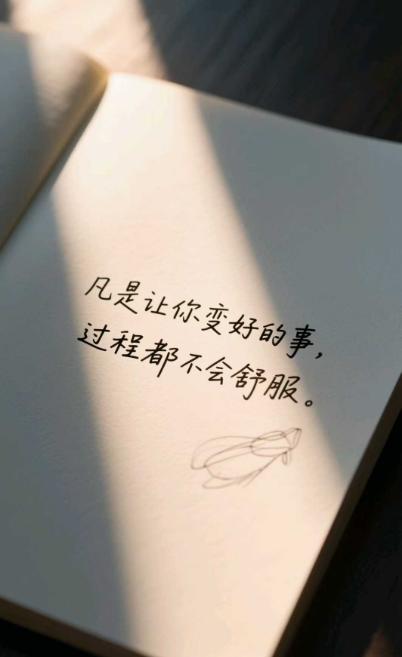 凡是让你变好的事，
过程都不会舒服。